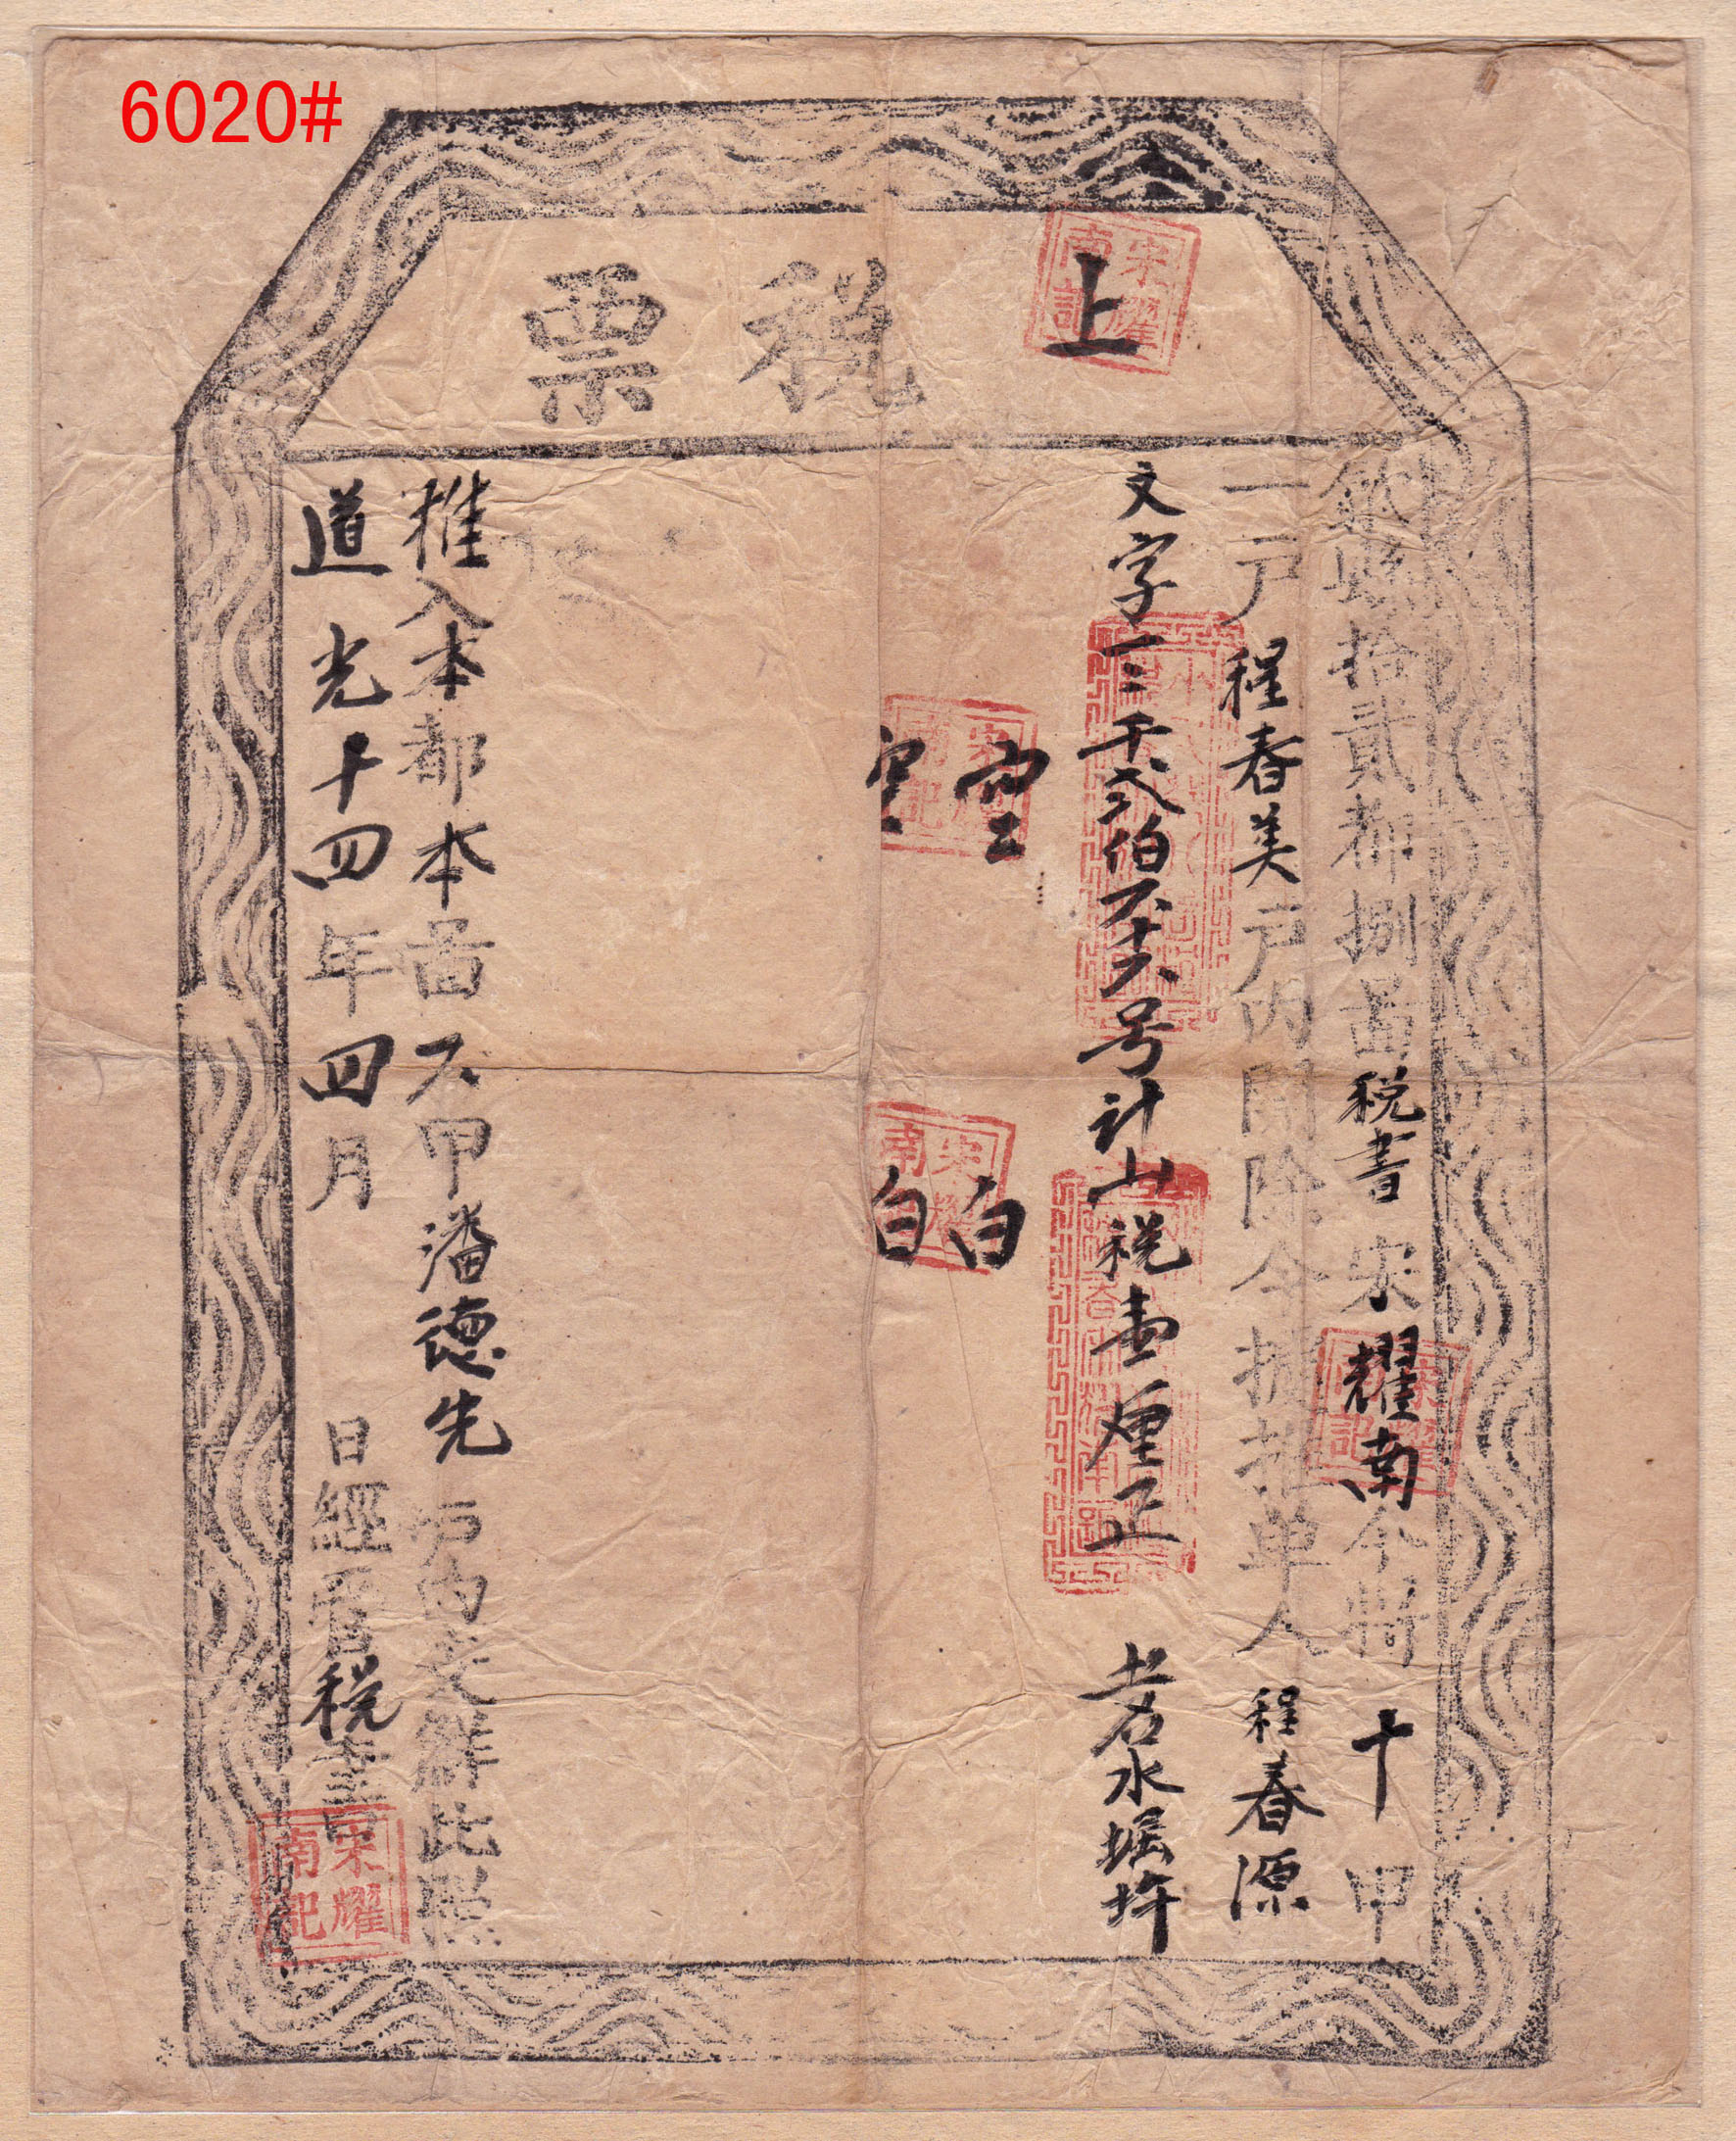 6020#
上 稅票
歙縣拾貳都捌啚稅書宋耀南今將十甲
一戶程春美戶內開除今據推單人程春源
文字 千弍伯六十六号計山稅壹厘正 岩水堀圩
空白
空白
推入本都本啚六甲潘德先戶內支解此照
道光十四年四月 日經管稅書
宋耀南記